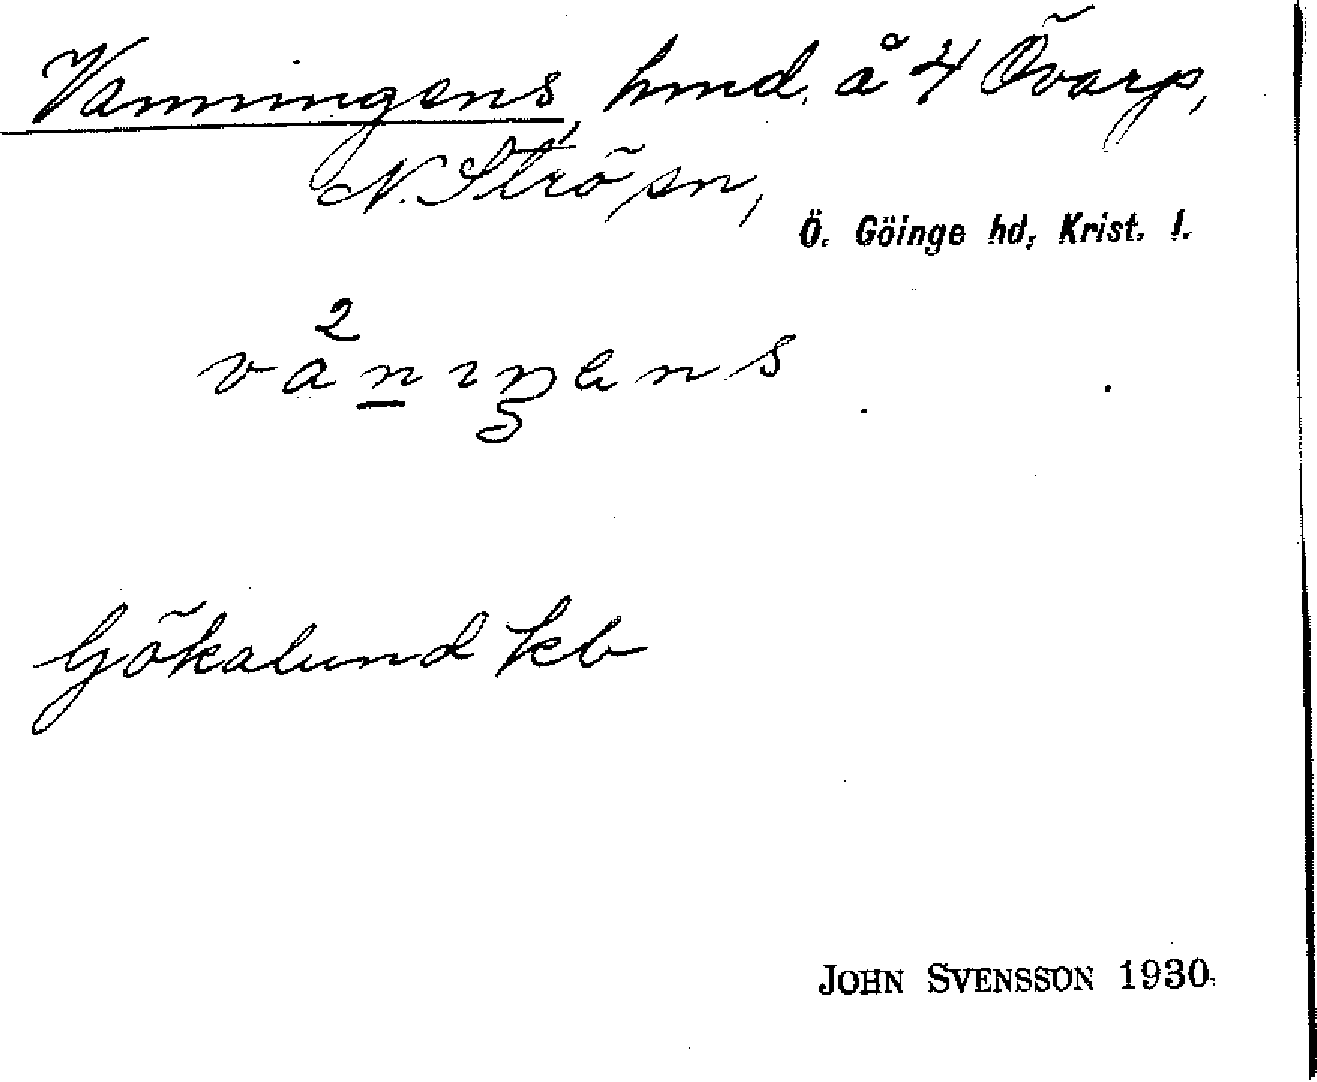 Vanningens, hmd. å 4 Övarp,
N. Strö sn,
Ö. Göinge hd, Krist. l.
Gökalund kb
JOHN SVENSSON 1930.